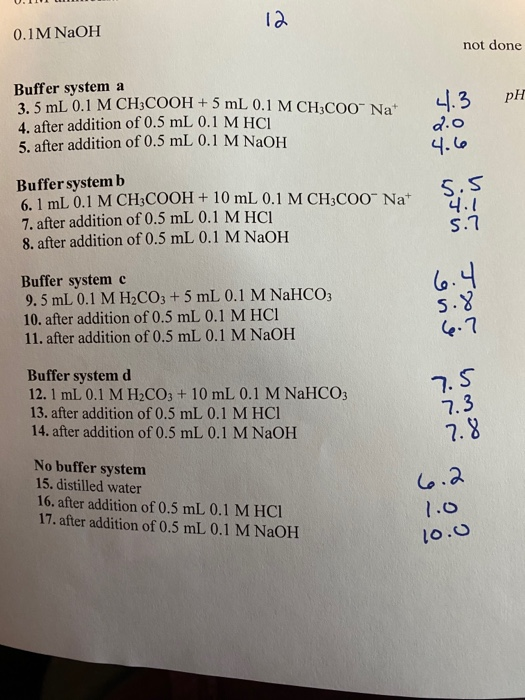 0.1M NaOH 12
not done
Buffer system a
3. 5 mL 0.1 M CH₃COOH + 5 mL 0.1 M CH₃COO⁻ Na⁺ 4.3 pH
4. after addition of 0.5 mL 0.1 M HCl 2.0
5. after addition of 0.5 mL 0.1 M NaOH 4.6
Buffer system b
6. 1 mL 0.1 M CH₃COOH + 10 mL 0.1 M CH₃COO⁻ Na⁺ 5.5
7. after addition of 0.5 mL 0.1 M HCl 4.1
8. after addition of 0.5 mL 0.1 M NaOH 5.7
Buffer system c
9. 5 mL 0.1 M H₂CO₃ + 5 mL 0.1 M NaHCO₃ 6.4
10. after addition of 0.5 mL 0.1 M HCl 5.8
11. after addition of 0.5 mL 0.1 M NaOH 6.7
Buffer system d
12. 1 mL 0.1 M H₂CO₃ + 10 mL 0.1 M NaHCO₃ 7.5
13. after addition of 0.5 mL 0.1 M HCl 7.3
14. after addition of 0.5 mL 0.1 M NaOH 7.8
No buffer system
15. distilled water 6.2
16. after addition of 0.5 mL 0.1 M HCl 1.0
17. after addition of 0.5 mL 0.1 M NaOH 10.0